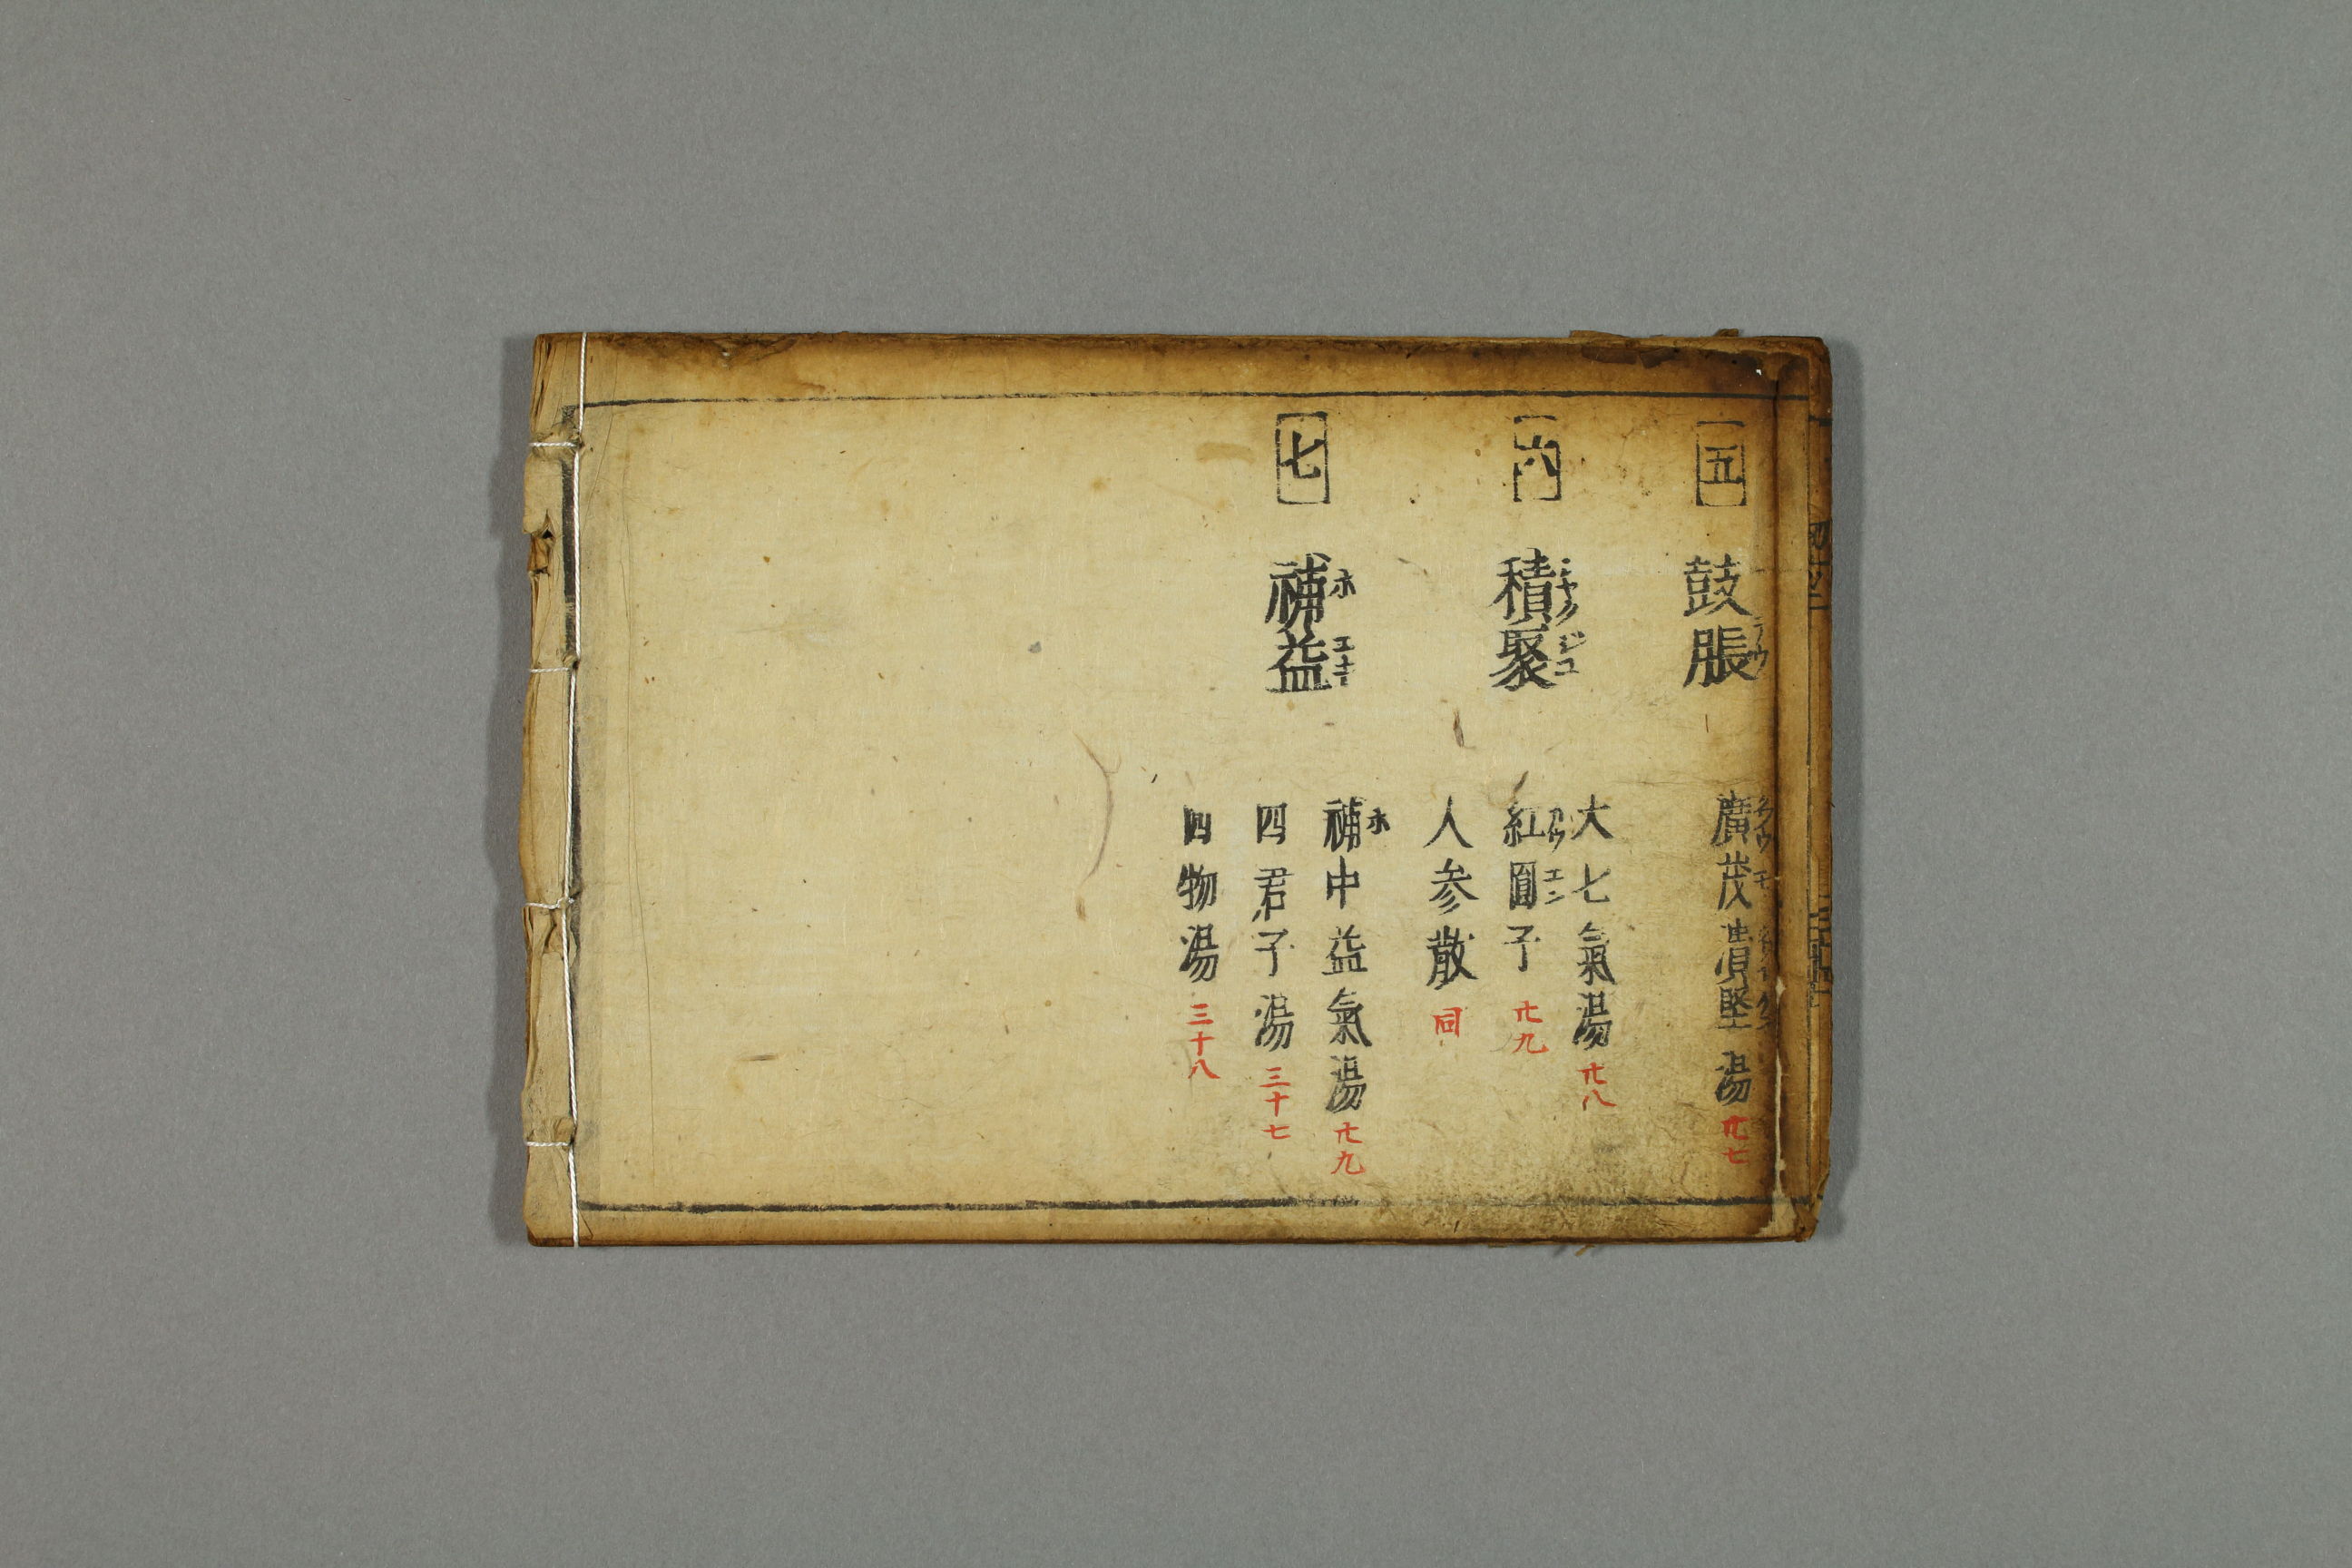 五 鼓脹
廣茂潰堅湯 卄七
六 積聚
大七氣湯 卄八
紅圓子 卄九
人参散 同
七 補益
補中益氣湯 卄九
四君子湯 三十七
四物湯 三十八